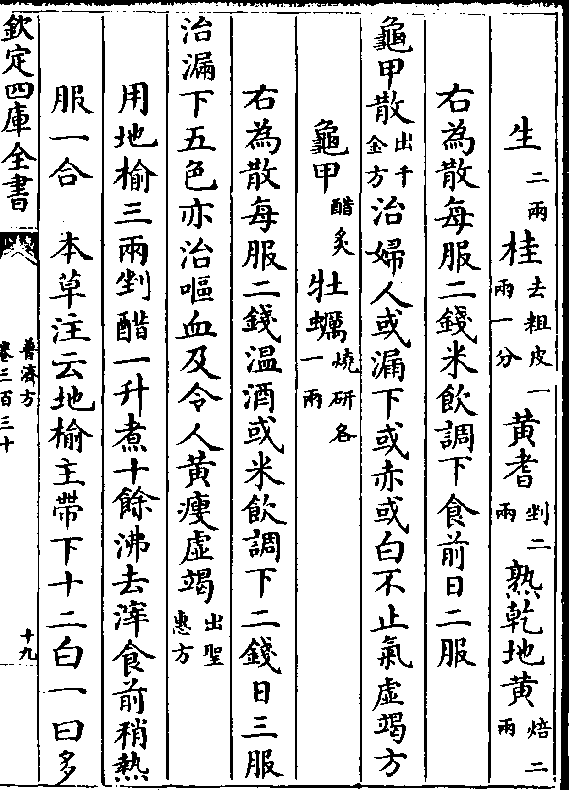 生二兩桂去粗皮一兩一分黃耆剉二兩熟乾地黃焙二兩
右為散每服二錢米飲調下食前日二服
龜甲散出千金方治婦人或漏下或赤或白不止氣虛竭方
龜甲醋炙牡蠣燒研各一兩
右為散每服二錢溫酒或米飲調下二錢日三服
治漏下五色亦治嘔血及令人黃瘦虛竭出聖惠方
用地榆三兩剉醋一升煮十餘沸去滓食前稍熱
服一合 本草注云地榆主帶下十二白一曰多
欽定四庫全書
普濟方
卷三百三十
十九